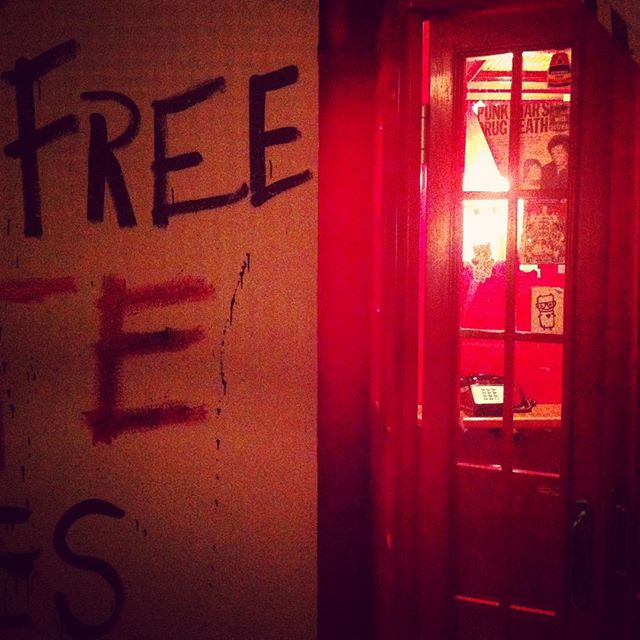 FREE
TE
ES
PUNK WAR'S
RUG DEATH